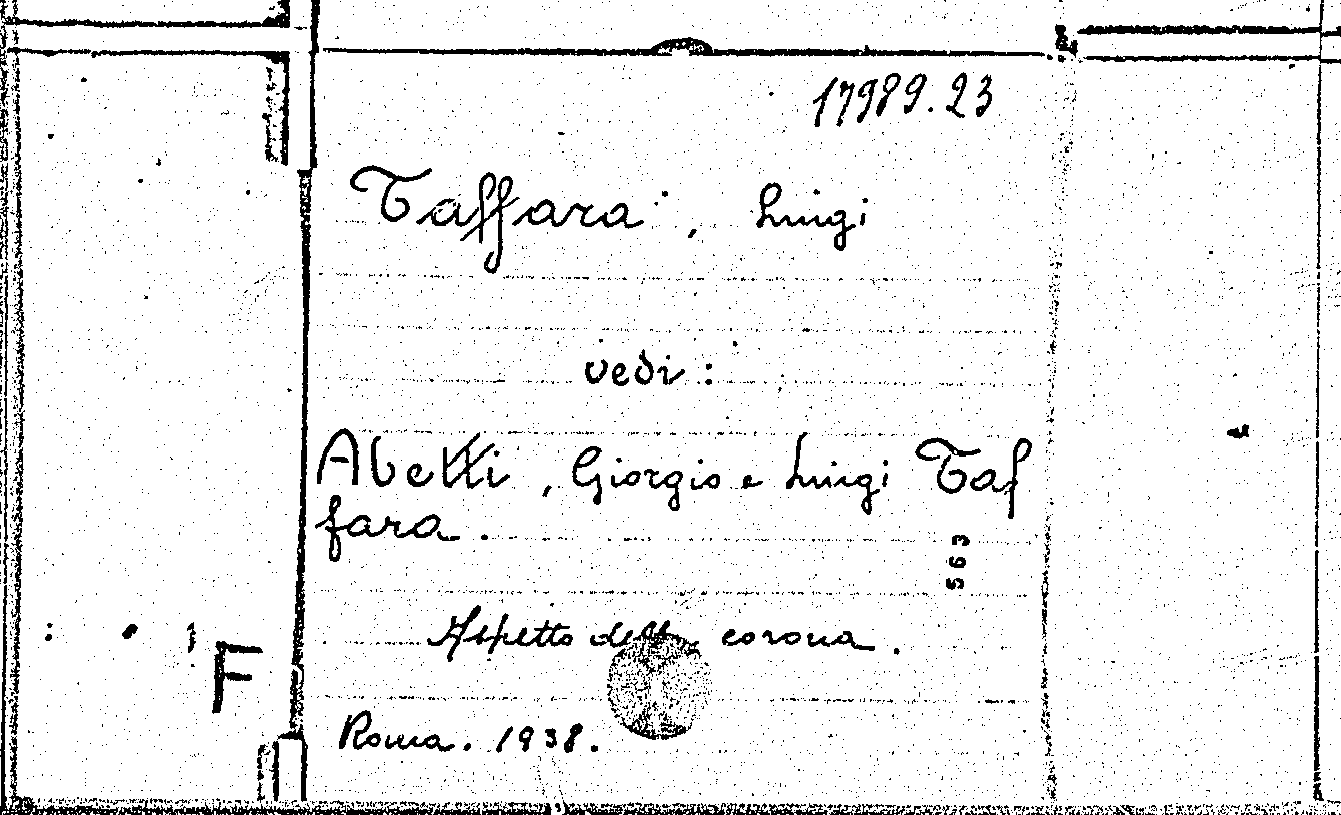 17989.23
Taffara, Luigi
vedi:
Abetti, Giorgio e Luigi Taf
fara.
563
Aspetto della corona.
F
Roma. 1938.